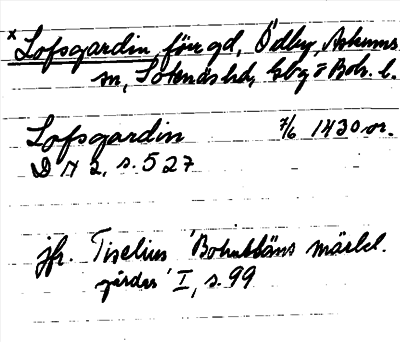 × Lofsgardin, förr gd, Ödby, Askums
sn, Sotenäs hd, Gbg o Boh. l.
Lofsgardin 7/6 1430 or.
D N 2, s. 527
jfr. Tiselius 'Bohusläns märkl.
gårdar' I, s. 99